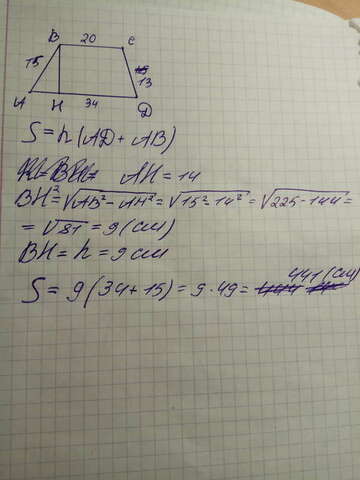 B 20 C
15 13
A H 34 D
S = h(AD + AB)
AH = 14
BH² = √AB² - AH² = √15² - 14² = √225 - 144 =
= √81 = 9 (см)
BH = h = 9 см
441 (см)
S = 9(34 + 15) = 9 · 49 =